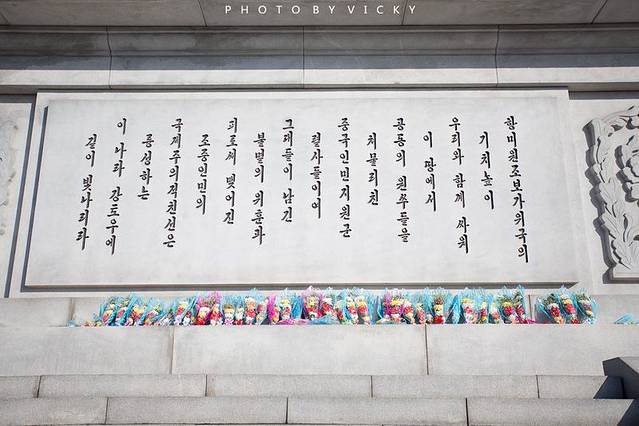 PHOTO BY VICKY
항미원조보가위국의
기치높이
우리와 함께 싸워
이 땅에서
공동의 원쑤들을
쳐물리친
중국인민지원군
렬사들이여
그대들이 남긴
불멸의 위훈과
피로써 맺어진
조중인민의
국제주의적친선은
륭성하는
이 나라 강토우에
길이 빛나리라